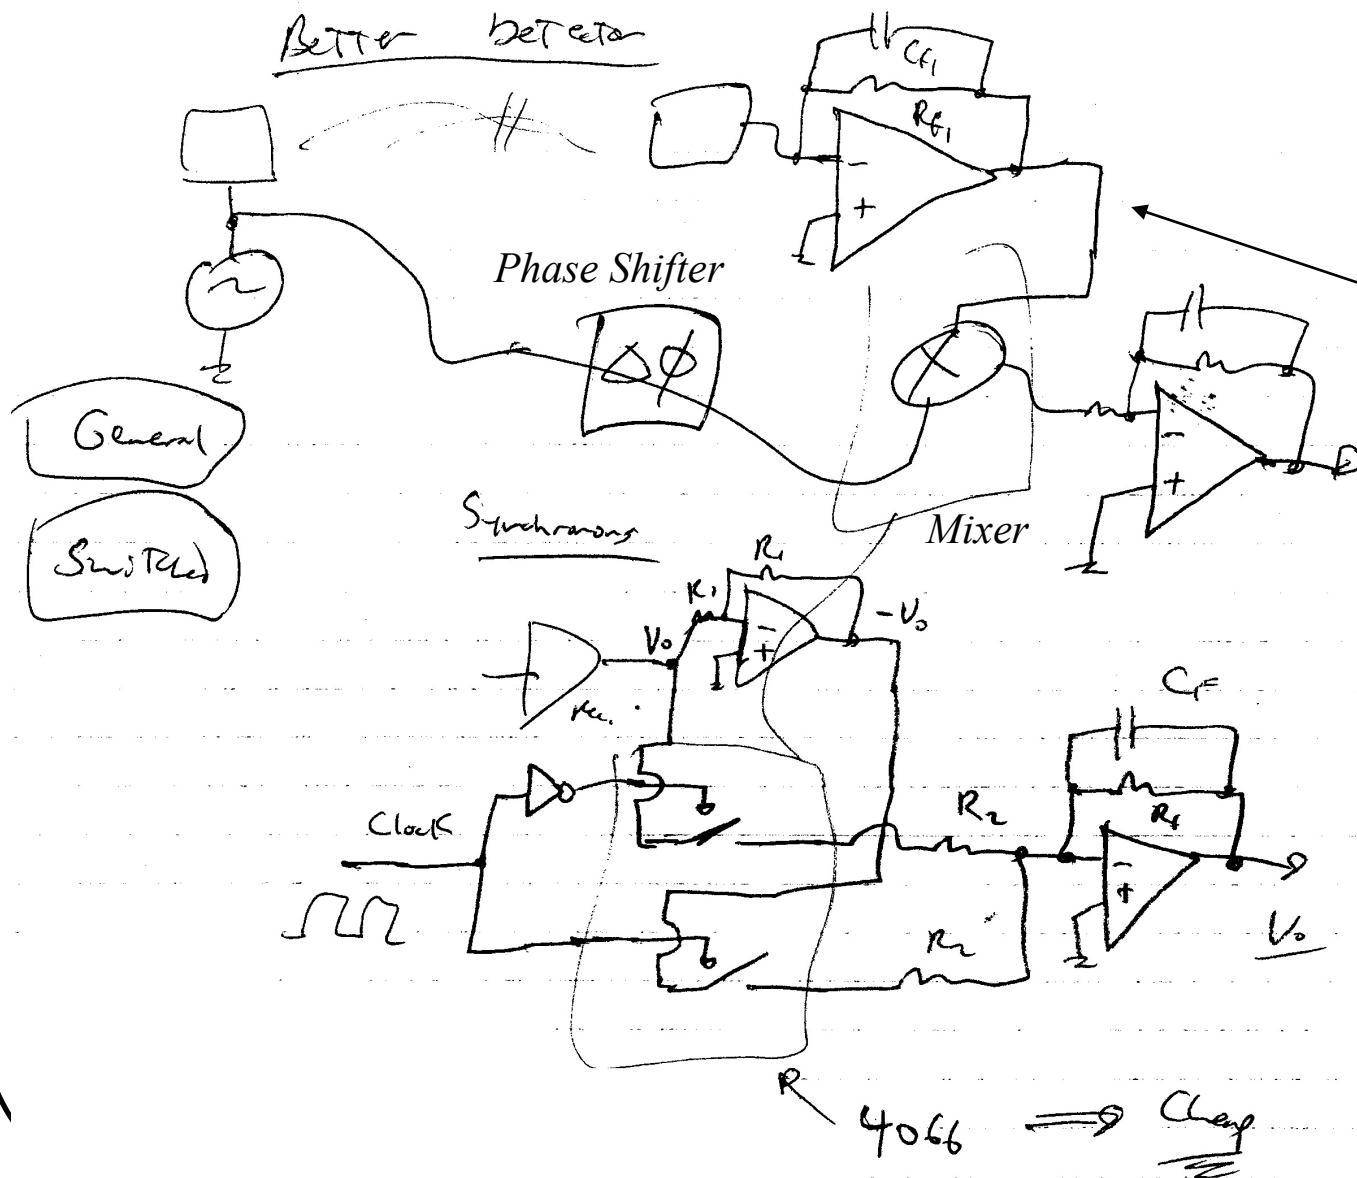 Better Detector
CF1
RF1
-
+
Phase Shifter
Δφ
General
-
+
Switched
Synchronous
Mixer
R1
R1
-V0
V0
-
+
CF
Clock
R2
Rf
-
+
R2
V0
4066 ⇒ Cheap